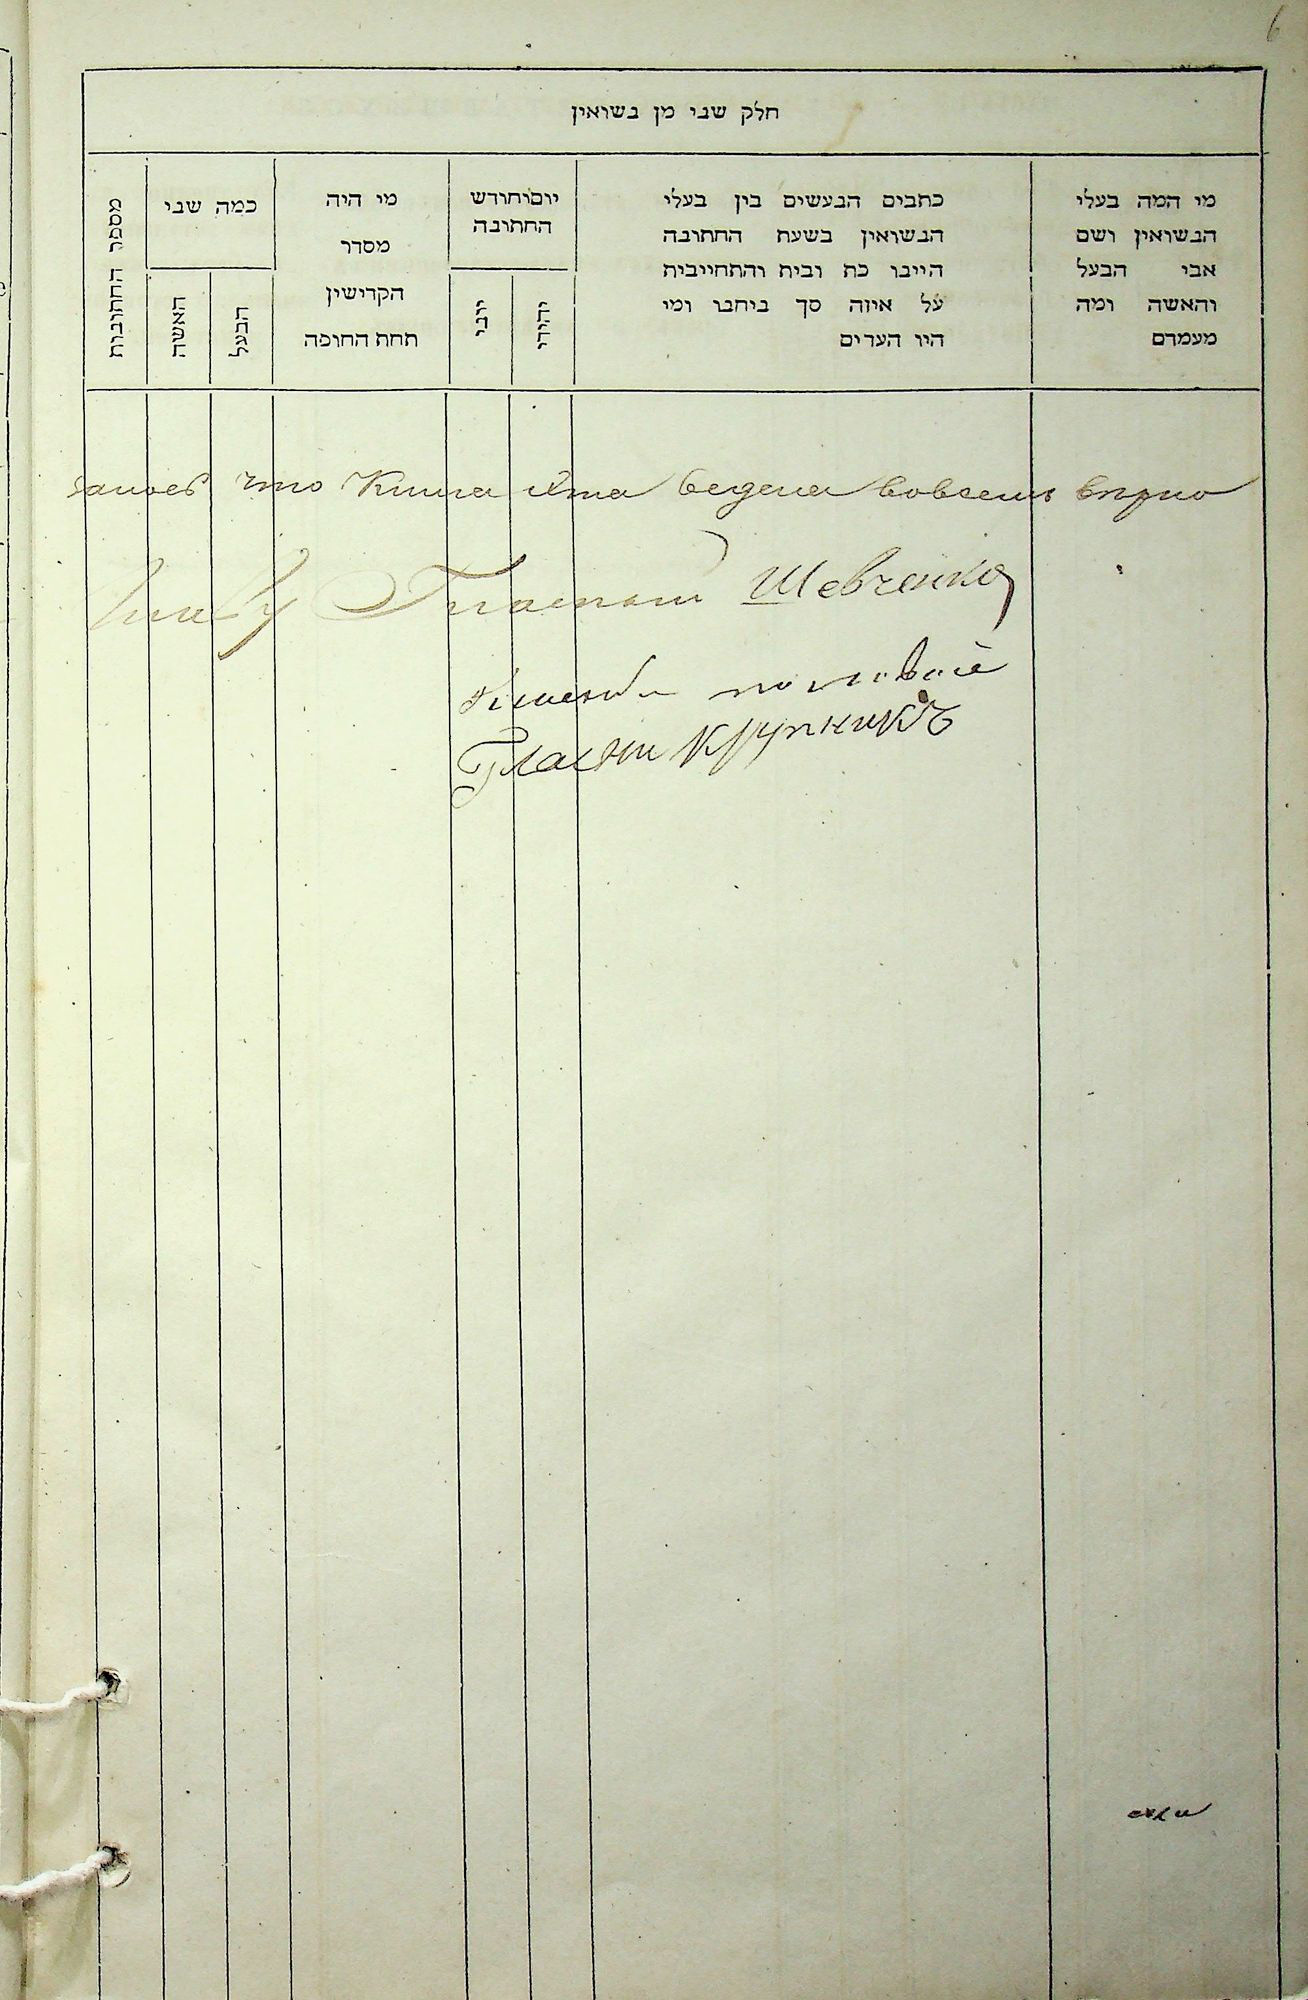 6
חלק שני מן נשואין
מי המה בעלי
הנשואין ושם
אבי הבעל
והאשה ומה
מעמדם
כתבים הנעשים בין בעלי
הנשואין בשעת החתונה
היינו כת ובית והתחייבות
על איזה סך ביחנו ומי
היו העדים
יום וחודש
החתונה
יהודי
יוני
מי היה
מסדר
הקדישין
תחת החופה
כמה שני
הבעל
האשה
מספר החתונות
что Книга эта ведена вовсемъ вѣрно
Гласный Шевченко
Гласны Крупникъ